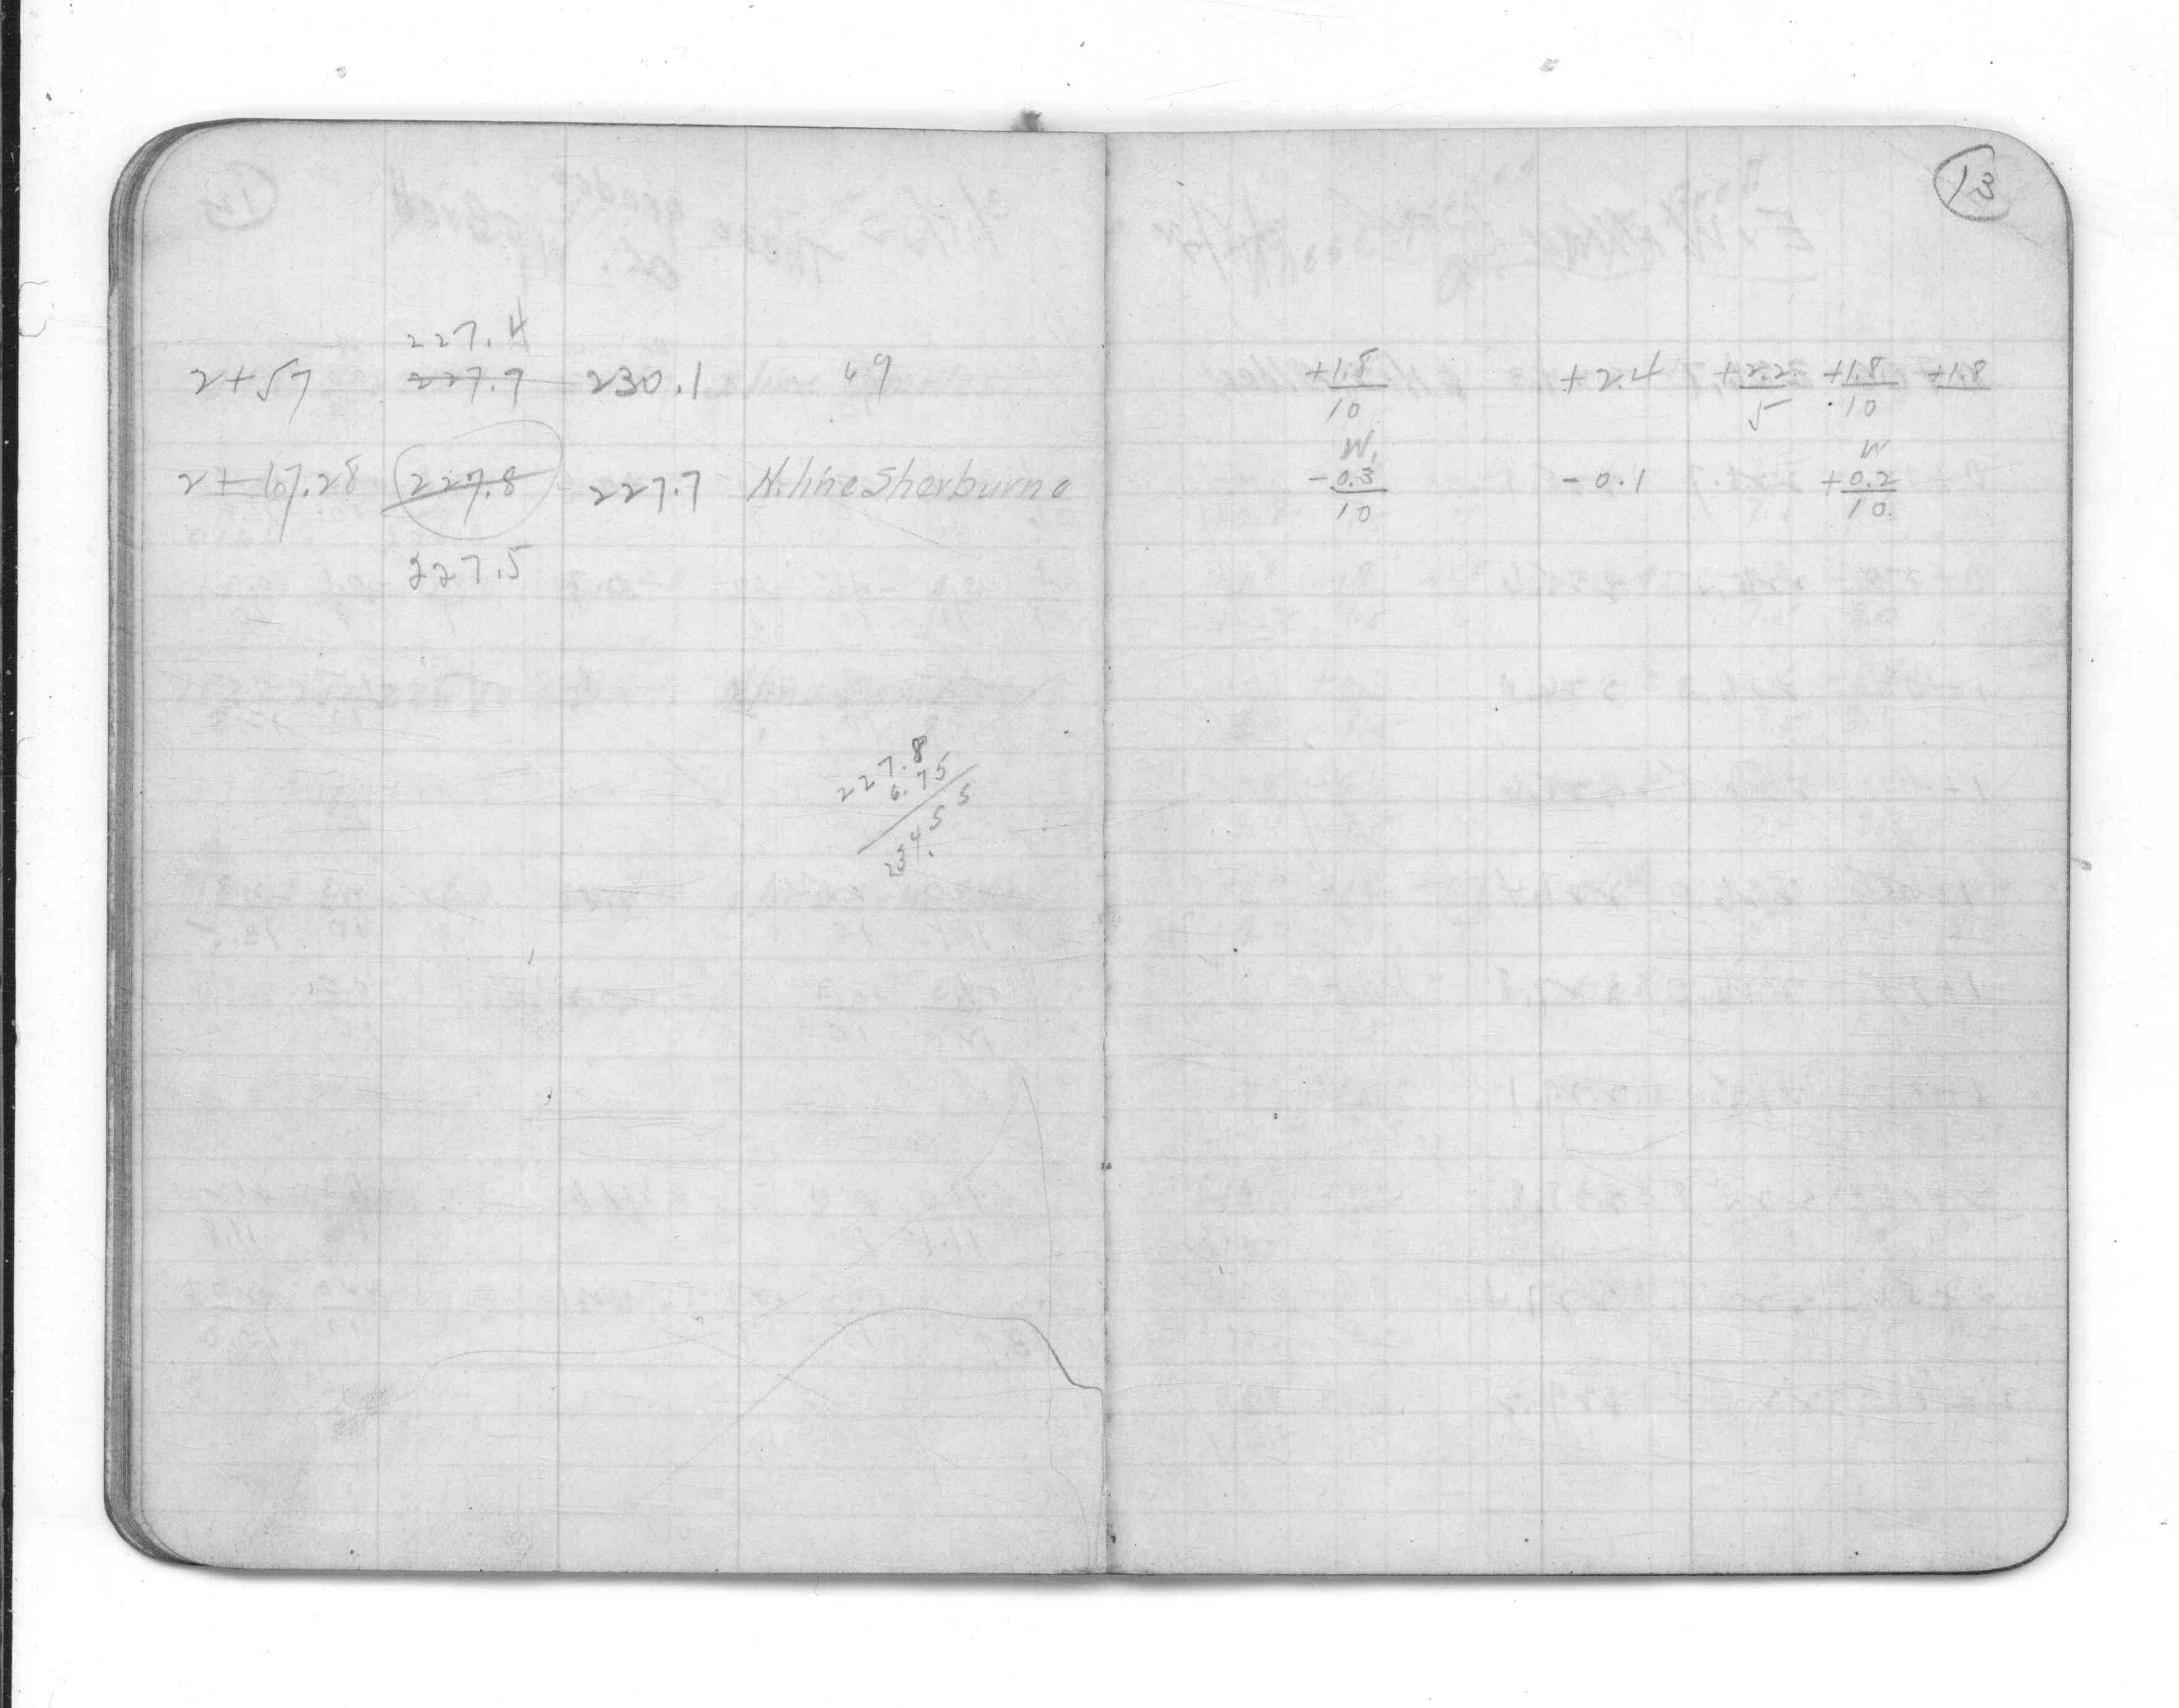 13
227.4
2+57 227.7 230.1 49 +1.8/10 +2.4 +2.2/5 +1.8/10 +1.8
W. W
2+67.28 227.8 227.7 N. line Sherburne -0.3/10 -0.1 +0.2/10.
227.5
227.8
6.75
234.55